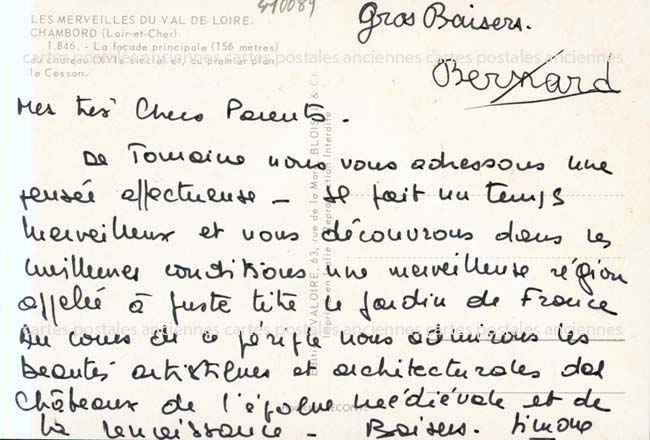 LES MERVEILLES DU VAL DE LOIRE.
CHAMBORD (Loir-et-Cher).
1.846. - La façade principale (156 mètres)
du château (XVIe siècle) et, au premier plan,
le Cosson.
410089
Gros Baisers.
Bernard
Mes très Chers Parents.
De Touraine nous vous adressons une
pensée affectueuse - Il fait un temps
merveilleux et nous découvrons dans les
meilleures conditions une merveilleuse région
appelée à juste titre le jardin de France
Au cours de ce périple nous admirons les
beautés artistiques et architecturales des
Châteaux de l'époque médiévale et de
la renaissance - Baisers. Simone
VALOIRE, 63, rue de la Mare, BLOIS
Imprimé en Italie - Reproduction Interdite
cartes postales anciennes cartes postales anciennes cartes postales anciennes
cartes postales anciennes cartes postales anciennes cartes postales anciennes